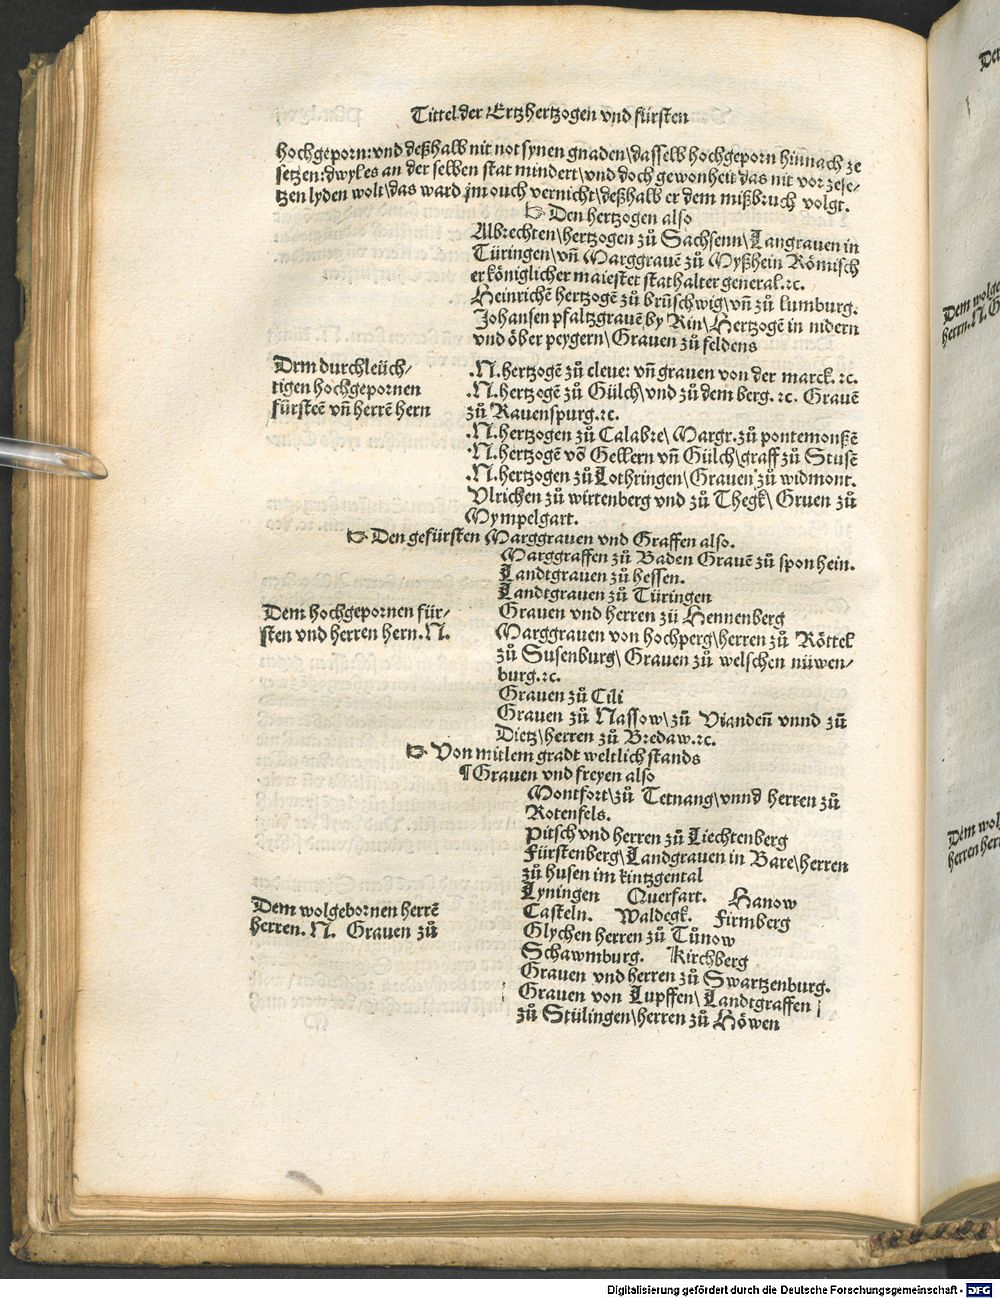 Tittel der Ertzhertzogen vnd fürsten
hochgeporn:vnd deßhalb nit not synen gnaden\dasselb hochgeporn hinnach ze
setzen:dwyl es an der selben stat mindert\vnd doch gewonheit das nit vor zese-
tzen lyden wolt\das ward jm ouch vernicht\deßhalb er dem mißbruch volgt.
☞ Den hertzogen also
Albrechten\hertzogen zů Sachsenn\Langrauen in
Türingen\vñ Marggrauẽ zů Myßhein Römisch
er königlicher maiestet stathalter general.ꝛc.
Heinrichẽ hertzogẽ zů brũschwig\vñ zů lumburg.
Johansen pfaltzgrauẽ by Rin\Hertzogẽ in nidern
vnd öber peygern\Grauen zů feldens
Drm durchleüch-
tigen hochgepornen
fürsteẽ vñ herrẽ hern
.N.hertzogẽ zů cleue: vñ grauen von der marck.ꝛc.
.N.hertzogẽ zů Gülch\vnd zů dem berg.ꝛc. Grauẽ
zů Rauenspurg.ꝛc.
.N.hertzogen zů Calabre\Margr.zů pontemonßẽ
.N.hertzogẽ võ Gellern vñ Gülch\graff zů Stusẽ
.N.hertzogen zů Lothringen\Grauen zů widmont.
Vlrichen zů wirtenberg vnd zů Thegk\Gruen zů
Mympelgart.
☞ Den gefürsten Marggrauen vnd Graffen also.
Marggraffen zů Baden Grauẽ zů sponhein.
Landtgrauen zů hessen.
Landtgrauen zů Türingen
Dem hochgepornen für-
sten vnd herren hern.N.
Grauen vnd herren zü Hennenberg
Marggrauen von hochperg\herren zů Röttel
zů Susenburg\Grauen zů welschen nüwen-
burg.ꝛc.
Grauen zů Cili
Grauen zů Nassow\zů Viandeñ vnnd zů
Dietz\herren zů Bredaw.ꝛc.
☞ Von mitlem gradt weltlich stands
¶Grauen vnd freyen also
Montfort\zů Tetnang\vnnd herren zů
Rotenfels.
Pitsch vnd herren zů Liechtenberg
Fürstenberg\Landgrauen in Bare\herren
zů husen im kintzgental
Lyningen Querfart. Hanow
Dem wolgebornen herrẽ
herren. N. Grauen zů
Casteln. Waldegk. Firmberg
Glychen herren zů Tůnow
Schawmburg. Kirchberg
Grauen vnd herren zů Swartzenburg.
Grauen von Lupffen\Landtgraffen
zů Stülingen\herren zů Höwen
Dem wolge
herrn.N.G
Dem wol
herren her
Digitalisierung gefördert durch die Deutsche Forschungsgemeinschaft - DFG